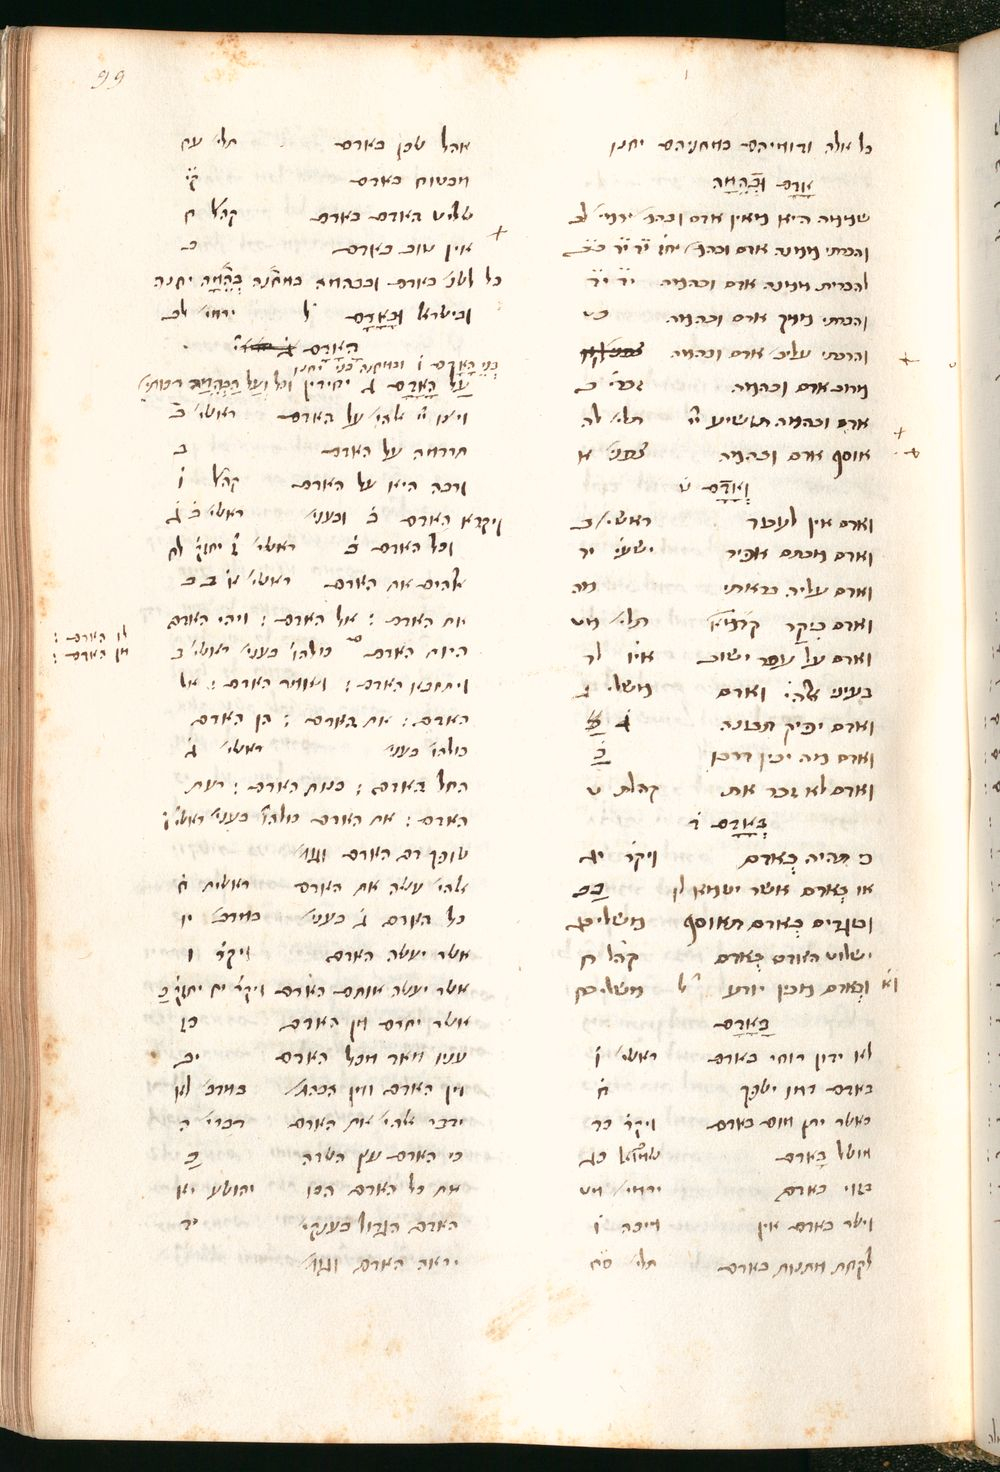 99
כל אלה ודומיהם במחניהם יחנו
אָדָם וּבְהֵמָה
שממה היא מאין אדם ובהמ׳ ירמי׳ לב
והכרתי ממנה אדם ובהמ׳ יחז׳
להכרית ממנה אדם ובהמה
והכרתי ממך אדם ובהמה כט
והרבתי עליכ׳ אדם ובהמה
מרוב אדם ובהמה זכרי׳ ב
אדם ובהמה תושיע יי׳ תלי׳ לו
אוסף אדם ובהמה צפני׳ א
וְאָדָם ט
ואדם אין לעבוד ראשי׳ ב
ואדם מכתם אופיר ישעי׳ יג
ואדם עליה בראתי מה
ואדם ביקר תלי׳ מט
ואדם על עפר ישוב איו׳ לד
בעיני אלהי׳ ואדם משלי ג
ואדם יפיק תבונה ג
ואדם מה יבין דרכו כ
ואדם לא זכר את קהלת ט
בְּאָדָם ו
כי תהיה באדם ויקר׳ יג
או באדם אשר יטמא לו כב
ובוגדים באדם תוסף משלי כג
ישלוט האדם באדם קהל׳ ח
ובאדם מבין יודע ל׳ משלי כח
בָאָדָם
לא ידון רוחי באדם ראשי׳ ו
באדם דמו ישפך ט
כאשר יתן מום באדם ויקר׳ כד
מושל באדם שמוא׳ כג
בגוי באדם ירמי׳ מט
וישר באדם אין מיכה ז
לקחת מתנות באדם תלי׳ סח
אהל שכן באדם תלי׳ עח
מבטוח באדם קי׳
שליט האדם באדם קהל׳ ח
אין טוב באדם ב
כל לשני׳ באדם ובבהמה במחנה בְּהֵמָה יחנה
ובישראל וּבָאָדָם ל׳ ירמי׳ לב
הָאָדָם
בְּנֵי הָאָדָם ו ובמחנה בני יחנו
עַל הָאָדָם ג יחידין וכל וְעַל הַבְּהֵמָה דסמי׳
ויצו יי׳ אלהי׳ על האדם ראשי׳ ב
תרדמה על האדם ב
ורבה היא על האדם קהל׳ ו
ויקרא האדם ב׳ ובעני׳ ראשי׳ ב ג
וכל האדם ב׳ ראשי׳ ז׳ יחזק׳ לח
אלהים את האדם ראשי׳ א׳ ב ב
את האדם : אל האדם : ויהי האדם
לו האדם :
מן האדם :
היות האדם כולהו׳ בעני׳ ראשי׳ ב
ויתחבא האדם : ויאמר האדם : אל
האדם : את האדם : הן האדם
כולהו׳ בעני׳ ראשי׳ ג׳
החל האדם : בנות האדם : רעת
האדם : את האדם כולהו׳ בעני׳ ראשי׳ ו׳
שופך דם האדם וגו׳
אלהי׳ עשה את האדם ראשית ט׳
כל האדם ג׳ בעני׳ במדב׳ יו
אשר יעשה האדם ויקר׳ ו
אשר יעשה אותם האדם ויקר׳ יח יחזק׳ כ
אשר יחרם מן האדם כז
עניו מאד מכל האדם יב
מן האדם ומן הבהמ׳ במדב׳ לא
ידבר אלהי׳ את האדם דברי׳ ה
כי האדם עץ השדה כ
את כל האדם הכו יהושע יא
האדם הגדול בענקי׳ יד
יראה האדם וגו׳